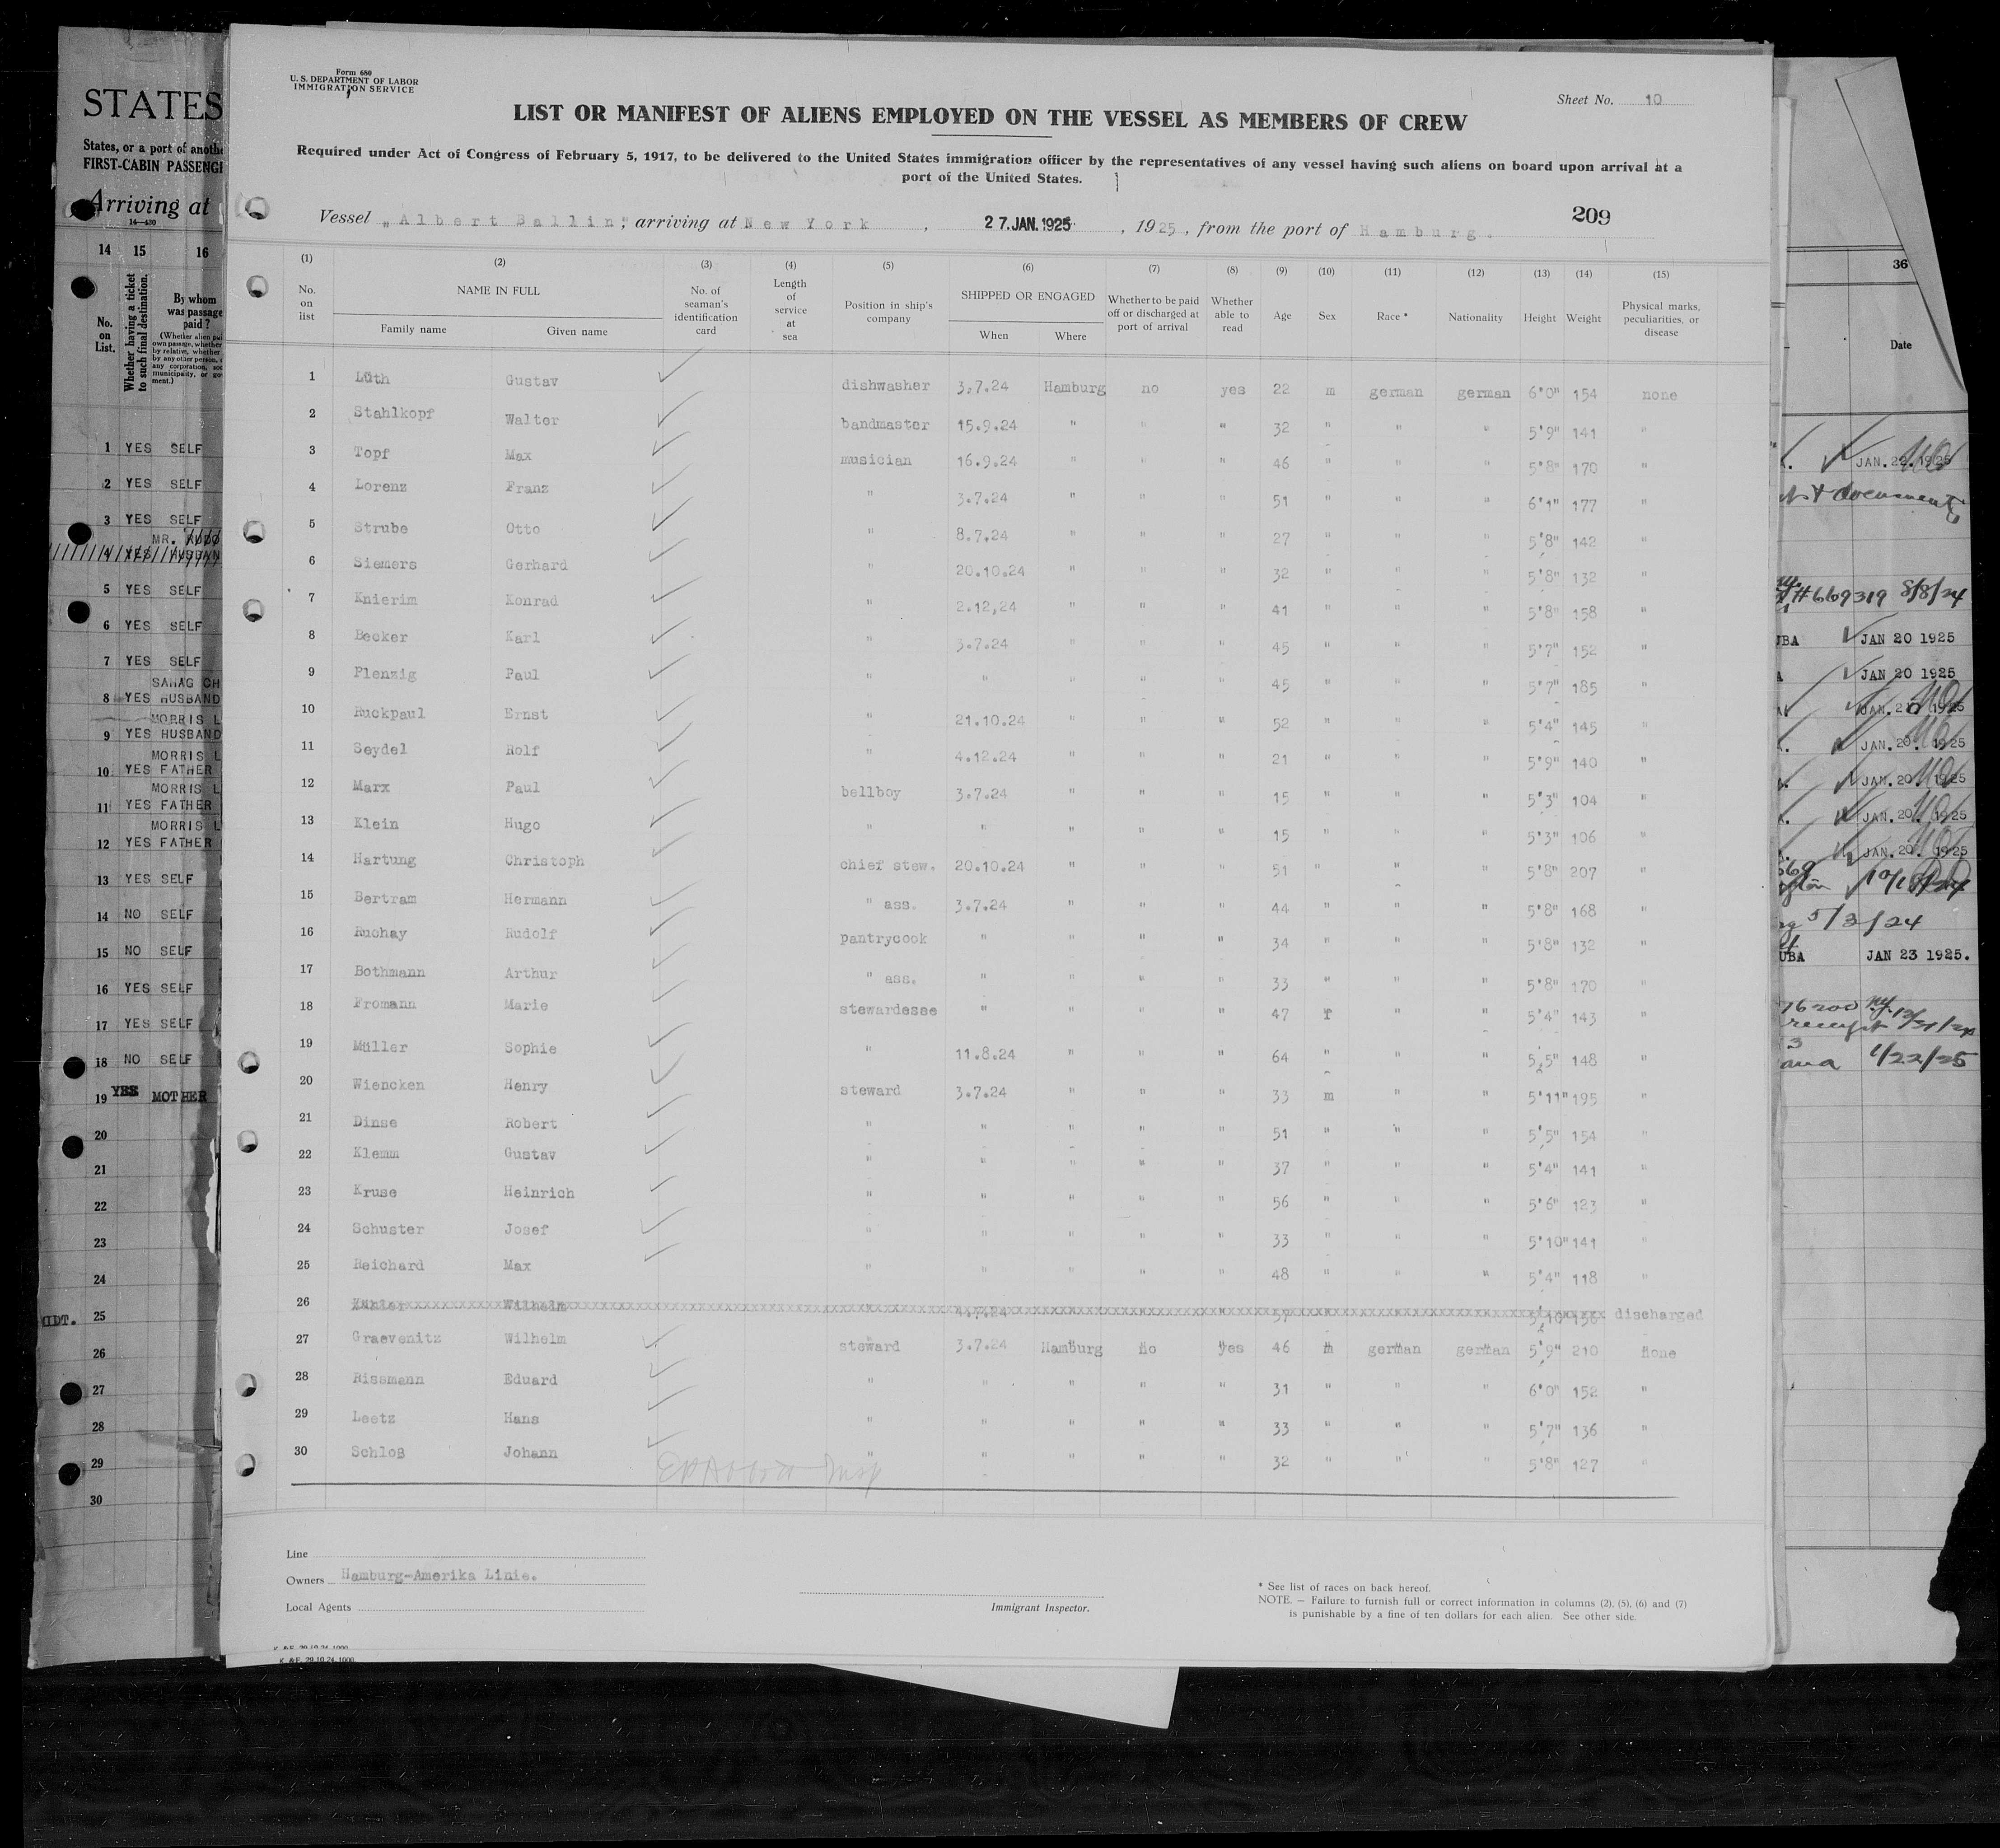 Form 680
U. S. DEPARTMENT OF LABOR
IMMIGRATION SERVICE
Sheet No. 10
LIST OR MANIFEST OF ALIENS EMPLOYED ON THE VESSEL AS MEMBERS OF CREW
Required under Act of Congress of February 5, 1917, to be delivered to the United States immigration officer by the representatives of any vessel having such aliens on board upon arrival at a
port of the United States.
209
Vessel „Albert Ballin", arriving at New York, 27.JAN.1925, 1925, from the port of Hamburg.
(1) (2) (3) (4) (5) (6) (7) (8) (9) (10) (11) (12) (13) (14) (15)
No. on list NAME IN FULL Family name Given name No. of seaman's identification card Length of service at sea Position in ship's company SHIPPED OR ENGAGED When Where Whether to be paid off or discharged at port of arrival Whether able to read Age Sex Race * Nationality Height Weight Physical marks, peculiarities, or disease
1 Lüth Gustav dishwasher 3.7.24 Hamburg no yes 22 m german german 6'0" 154 none
2 Stahlkopf Walter bandmaster 15.9.24 " " " 32 " " " 5'9" 141 "
3 Topf Max musician 16.9.24 " " " 46 " " " 5'8" 170 "
4 Lorenz Franz " 3.7.24 " " " 51 " " " 6'1" 177 "
5 Strube Otto " 8.7.24 " " " 27 " " " 5'8" 142 "
6 Siemers Gerhard " 20.10.24 " " " 32 " " " 5'8" 132 "
7 Knierim Konrad " 2.12,24 " " " 41 " " " 5'8" 158 "
8 Becker Karl " 3.7.24 " " " 45 " " " 5'7" 152 "
9 Plenzig Paul " " " " " 45 " " " 5'7" 185 "
10 Ruckpaul Ernst " 21.10.24 " " " 52 " " " 5'4" 145 "
11 Seydel Rolf " 4.12.24 " " " 21 " " " 5'9" 140 "
12 Marx Paul bellboy 3.7.24 " " " 15 " " " 5'3" 104 "
13 Klein Hugo " " " " " 15 " " " 5'3" 106 "
14 Hartung Christoph chief stew. 20.10.24 " " " 51 " " " 5'8" 207 "
15 Bertram Hermann " ass. 3.7.24 " " " 44 " " " 5'8" 168 "
16 Ruchay Rudolf pantrycook " " " " 34 " " " 5'8" 132 "
17 Bothmann Arthur " ass. " " " " 33 " " " 5'8" 170 "
18 Fromann Marie stewardesse " " " " 47 f " " 5'4" 143 "
19 Müller Sophie " 11.8.24 " " " 64 " " " 5'5" 148 "
20 Wiencken Henry steward 3.7.24 " " " 33 m " " 5'11" 195 "
21 Dinse Robert " " " " " 51 " " " 5'5" 154 "
22 Klemm Gustav " " " " " 37 " " " 5'4" 141 "
23 Kruse Heinrich " " " " " 56 " " " 5'6" 123 "
24 Schuster Josef " " " " " 33 " " " 5'10" 141 "
25 Reichard Max " " " " " 48 " " " 5'4" 118 "
26 Wilhelm discharged
27 Graevenitz Wilhelm steward 3.7.24 Hamburg no yes 46 m german german 5'9" 210 none
28 Rissmann Eduard " " " " " 31 " " " 6'0" 152 "
29 Leetz Hans " " " " " 33 " " " 5'7" 136 "
30 Schloß Johann " " " " " 32 " " " 5'8" 127 "
Line
Owners Hamburg-Amerika Linie.
Local Agents
Immigrant Inspector.
* See list of races on back hereof.
NOTE. — Failure to furnish full or correct information in columns (2), (5), (6) and (7)
is punishable by a fine of ten dollars for each alien. See other side.
K. & F. 29.10.24. 1000
STATES
States, or a port of anoth
FIRST-CABIN PASSENG
Arriving at
14 15 16
No. on List. Whether having a ticket to such final destination. By whom was passage paid?
1 YES SELF
2 YES SELF
3 YES SELF
4 YES HUSBAN
5 YES SELF
6 YES SELF
7 YES SELF
8 YES HUSBAND
MORRIS L
9 YES HUSBAND
MORRIS L
10 YES FATHER
MORRIS L
11 YES FATHER
MORRIS L
12 YES FATHER
13 YES SELF
14 NO SELF
15 NO SELF
16 YES SELF
17 YES SELF
18 NO SELF
19 YES MOTHER
20
21
22
23
24
25
26
27
28
29
30
36
Date
JAN. 22. 1925
#669319 8/8/24
UBA JAN 20 1925
JAN 20 1925
JAN. 20. 1925
JAN. 20. 1925
JAN. 20. 1925
JAN. 20. 1925
5/3/24
UBA JAN 23 1925.
1/22/25